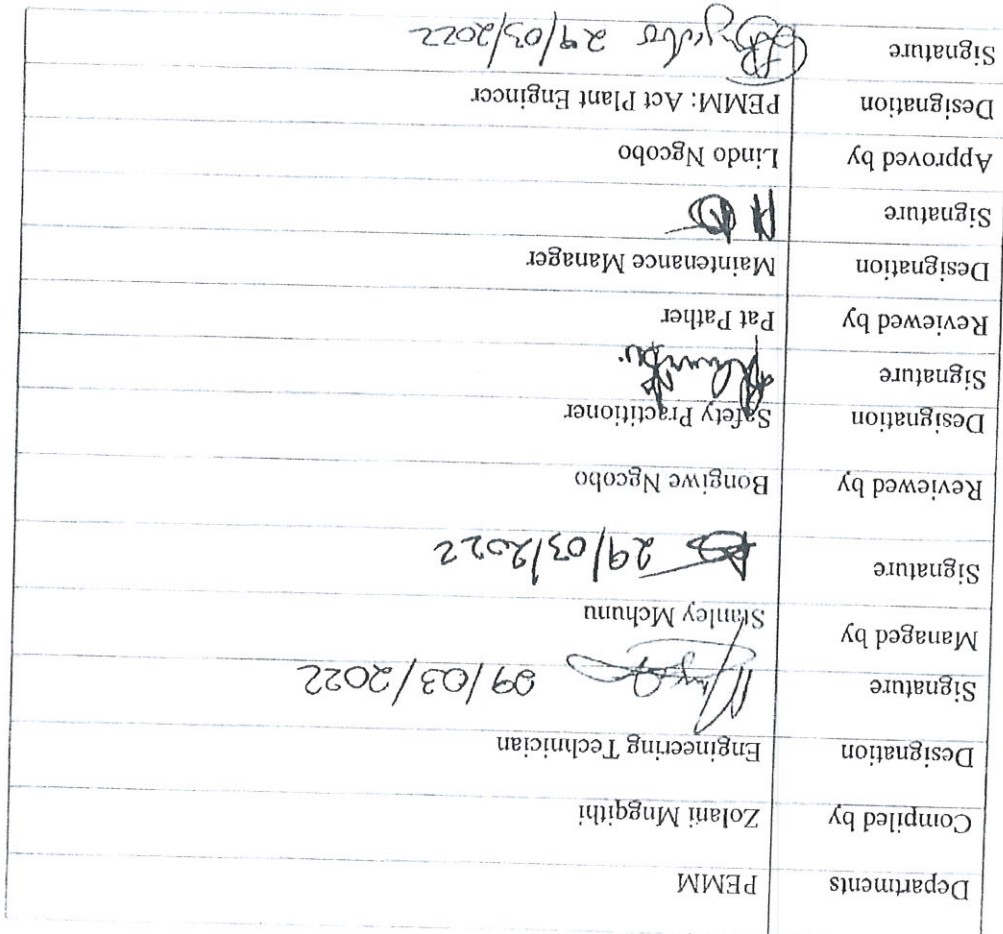 Departments PEMM
Compiled by Zolani Mngqithi
Designation Engineering Technician
Signature 09/03/2022
Managed by Stanley Mchunu
Signature 29/03/2022
Reviewed by Bongiwe Ngcobo
Designation Safety Practitioner
Signature
Reviewed by Pat Pather
Designation Maintenance Manager
Signature
Approved by Lindo Ngcobo
Designation PEMM: Act Plant Engineer
Signature 29/03/2022